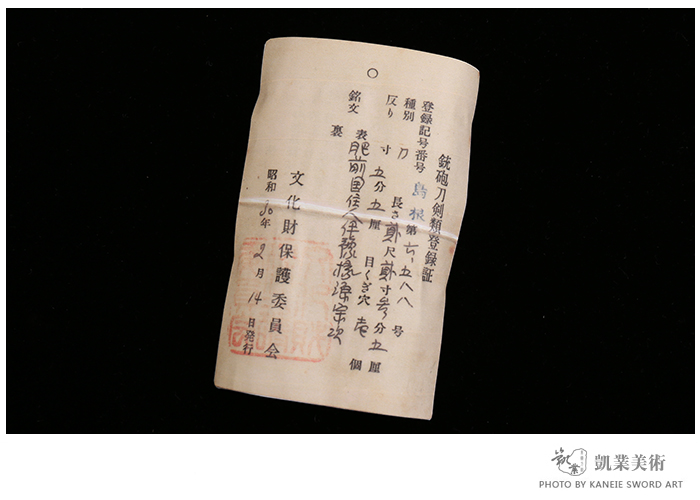 銃砲刀剣類登録証
登録記号番号 島根 第六、五八八号
種別 刀 長さ 貳尺貳寸参分五厘
反り 寸五分五厘 目くぎ穴 壱個
銘文 表 肥前国住人伊豫掾源宗次
裏
文化財保護委員会
昭和30年2月14日発行
凱業美術
PHOTO BY KANEIE SWORD ART